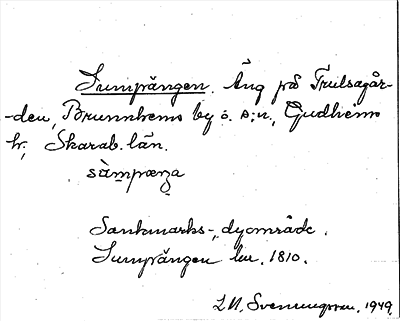 Sumpängen. Äng på Trulsagår-
-den, Brunnhems by o. s:n, Gudhems
hr, Skarab. län.
sàmpæŋa
Sankmarks-, dyområde.
Sumpängen lm. 1810.
L.M. Svenungsson. 1949.